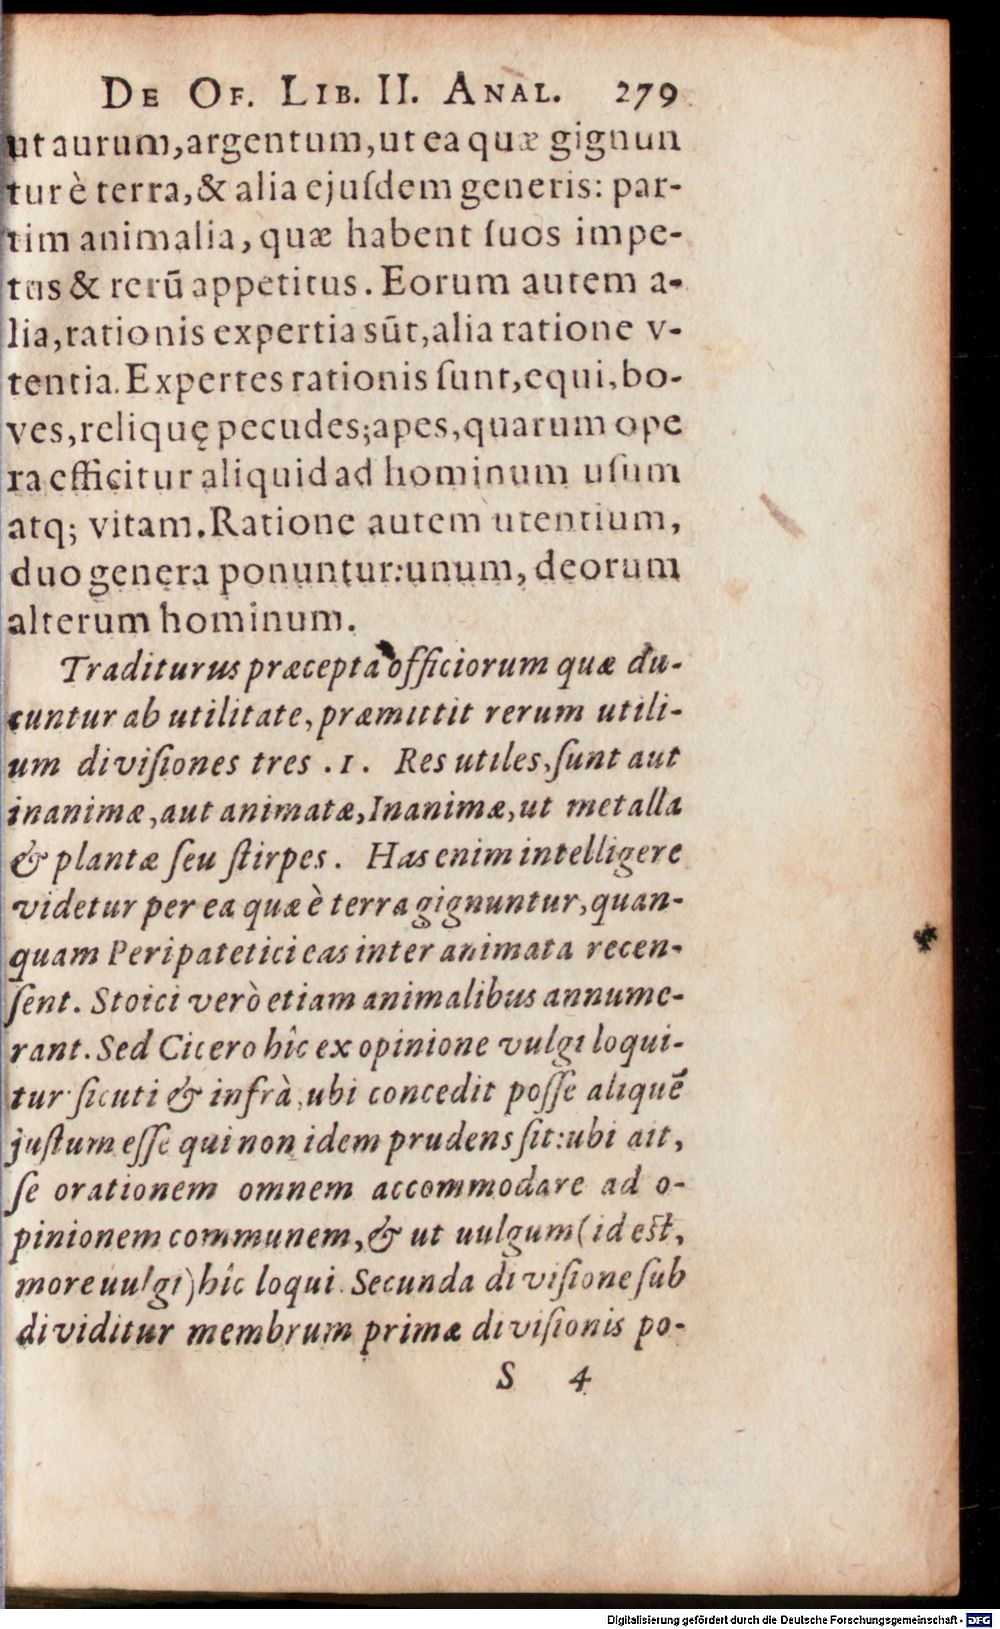 DE OF. LIB. II. ANAL. 279
ut aurum, argentum, ut ea quæ gignun
tur è terra, & alia ejuſdem generis: par-
tim animalia, quæ habent ſuos impe-
tus & rerū appetitus. Eorum autem a-
lia, rationis expertia sūt, alia ratione v-
tentia. Expertes rationis ſunt, equi, bo-
ves, reliquę pecudes; apes, quarum ope
ra efficitur aliquid ad hominum uſum
atq; vitam. Ratione autem utentium,
duo genera ponuntur: unum, deorum
alterum hominum.
Traditurus præcepta officiorum quæ du-
cuntur ab utilitate, præmittit rerum utili-
um diviſiones tres . 1. Res utiles, ſunt aut
inanimæ, aut animatæ, Inanimæ, ut metalla
& plantæ ſeu ſtirpes. Has enim intelligere
videtur per ea quæ è terra gignuntur, quan-
quam Peripatetici eas inter animata recen-
ſent. Stoici verò etiam animalibus annume-
rant. Sed Cicero hîc ex opinione vulgi loqui-
tur ſicuti & infrà, ubi concedit poſſe aliquē
juſtum eſſe qui non idem prudens ſit: ubi ait,
ſe orationem omnem accommodare ad o-
pinionem communem, & ut uulgum (id eſt,
more uulgi) hîc loqui. Secunda diviſione ſub
dividitur membrum primæ diviſionis po-
S 4
Digitalisierung gefördert durch die Deutsche Forschungsgemeinschaft - DFG